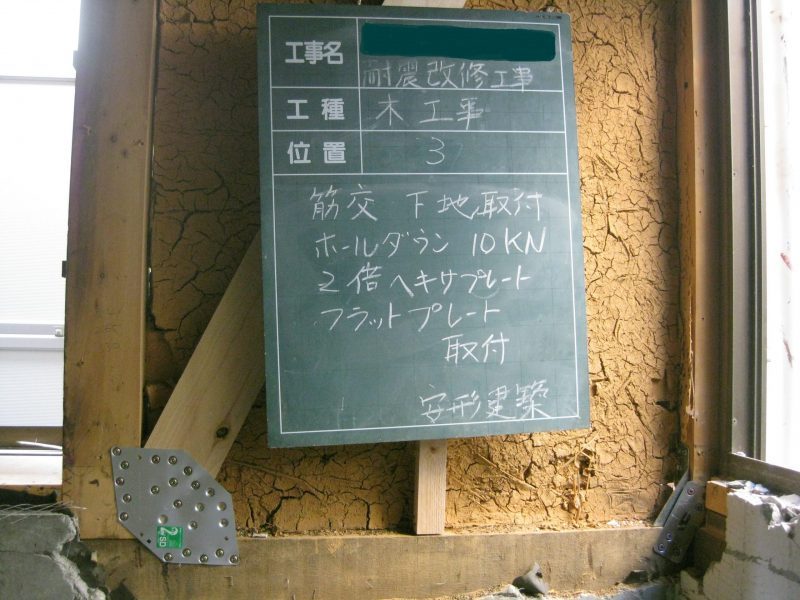 工事名
耐震改修工事
工種 木工事
位置 3
筋交 下地取付
ホールダウン 10KN
2倍ヘキサプレート
フラットプレート
取付
安形建築
2